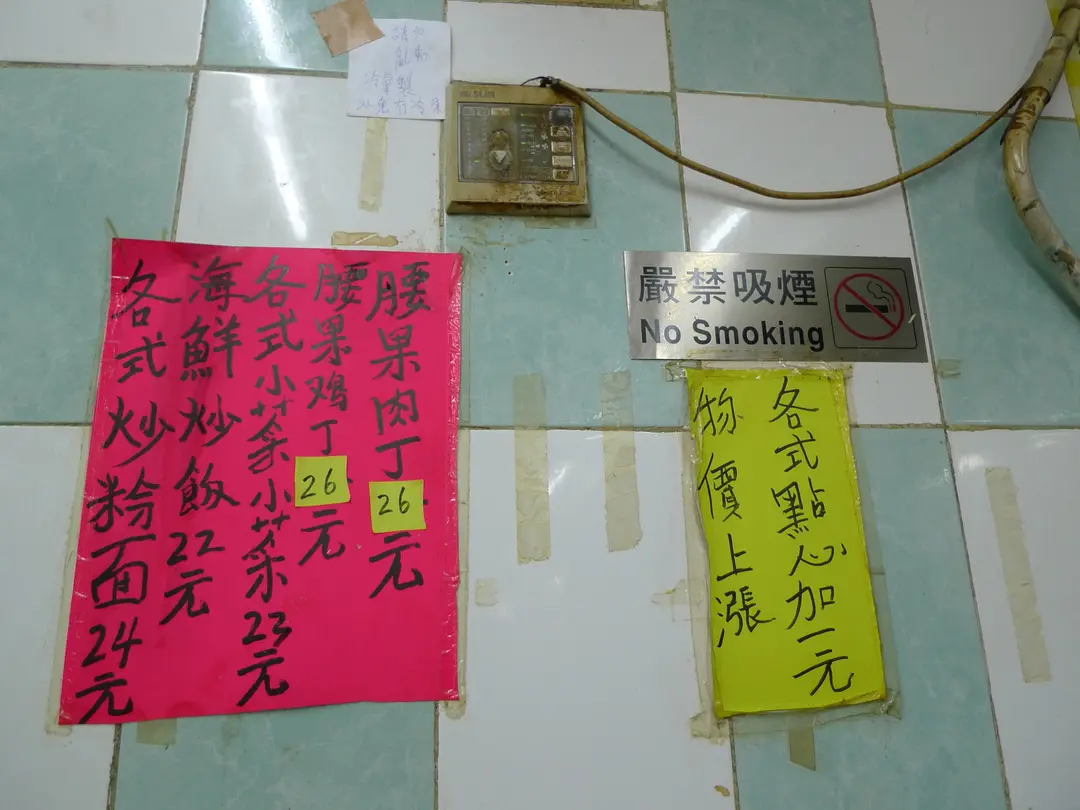 請勿
亂動
冷氣製
腰果肉丁26元
腰果鸡丁26元
各式小菜小菜23元
海鮮炒飯22元
各式炒粉面24元
嚴禁吸煙
No Smoking
各式點心加一元
物價上漲